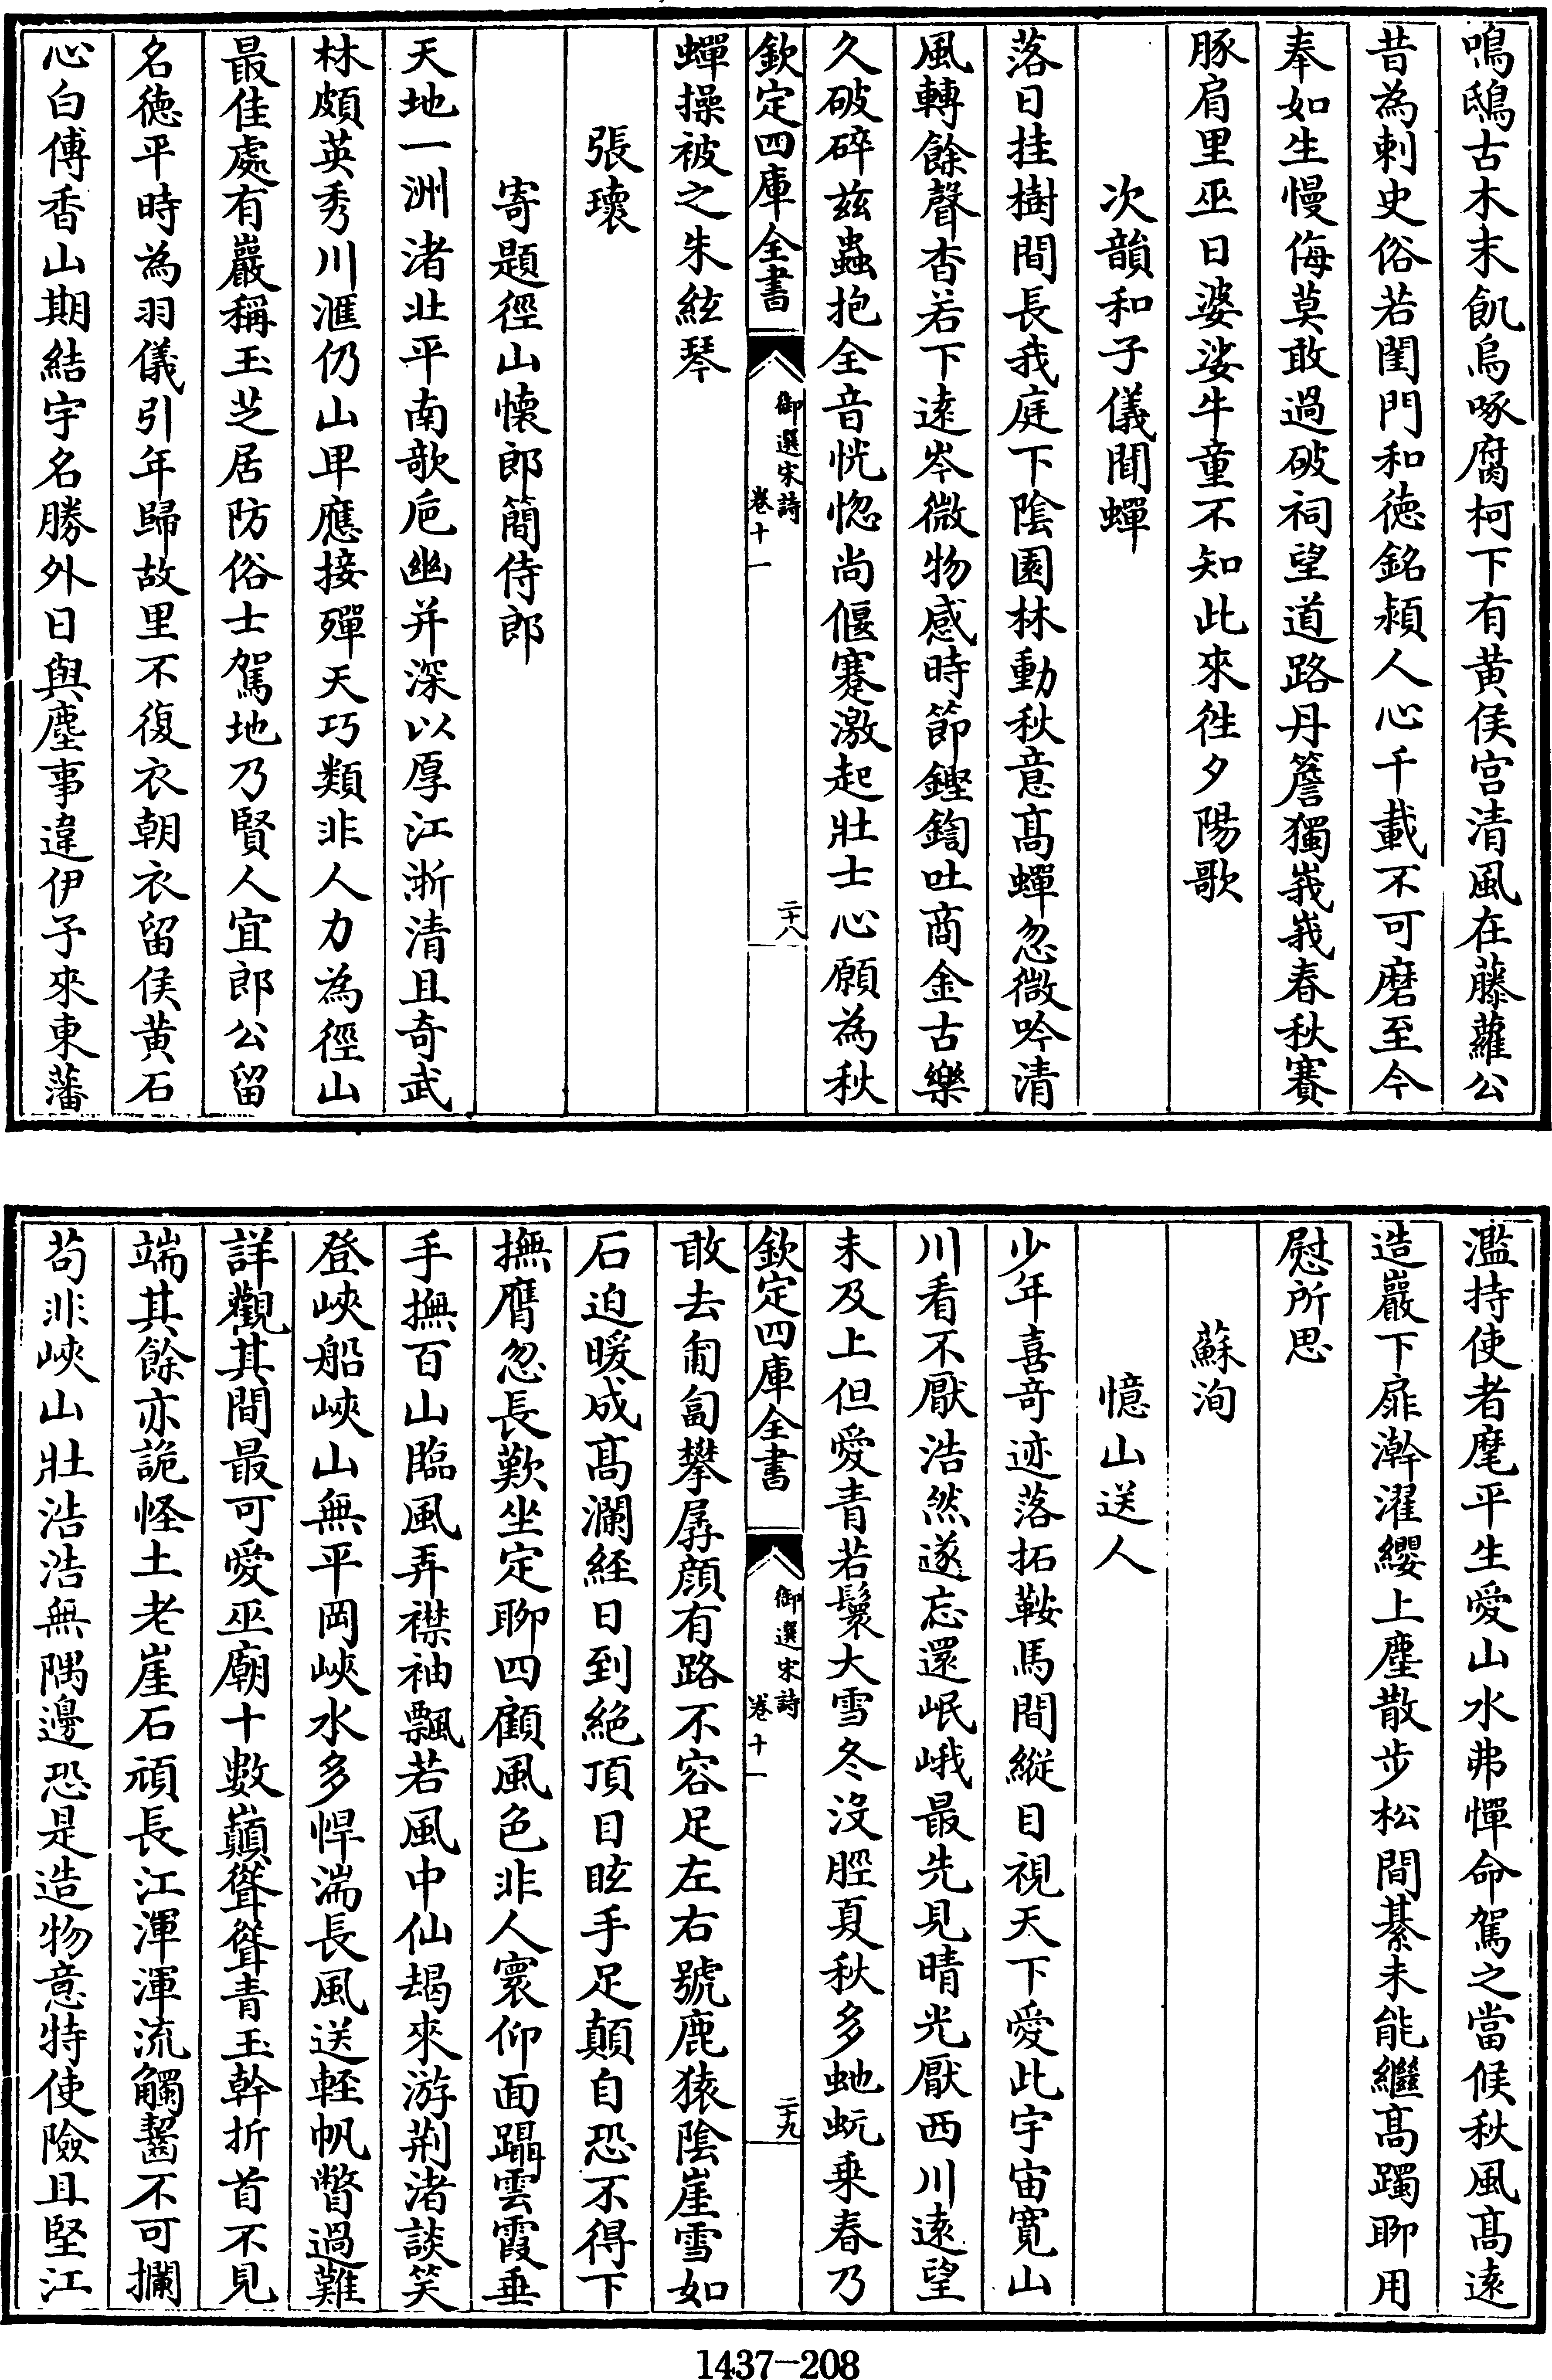 鳴鴟古木末飢烏啄腐柯下有黄侯宫清風在藤蘿公
昔為刺史俗若閨門和徳銘潁人心千載不可磨至今
奉如生慢侮莫敢過破祠望道路丹簷獨峩峩春秋賽
豚肩里巫日婆娑牛童不知此來徃夕陽歌
次韻和子儀聞蟬
落日挂樹間長我庭下隂園林動秋意髙蟬忽微吟清
風轉餘聲杳若下逺岑微物感時節鏗鍧吐商金古樂
久破碎兹蟲抱全音恍惚尚偃蹇激起壯士心願為秋
欽定四庫全書
御選宋詩
卷十一
二十八
蟬操被之朱絃琴
張瓌
寄題徑山懐郎簡侍郎
天地一洲渚壯平南欹巵幽并深以厚江浙清且奇武
林頗英秀川滙仍山卑應接殫天巧類非人力為徑山
最佳處有巖稱玉芝居防俗士駕地乃賢人宜郎公留
名徳平時為羽儀引年歸故里不復衣朝衣留侯黄石
心白傅香山期結宇名勝外日與塵事違伊予來東藩
濫持使者麾平生愛山水弗憚命駕之當候秋風髙逺
造巖下扉澣濯纓上塵散步松間綦未能繼髙躅聊用
慰所思
蘇洵
憶山送人
少年喜竒迹落拓鞍馬間縦目視天下愛此宇宙寛山
川看不厭浩然遂忘還岷峨最先見晴光厭西川逺望
未及上但愛青若鬟大雪冬没脛夏秋多虵蚖乗春乃
欽定四庫全書
御選宋詩
卷十一
二十九
敢去匍匐攀孱顔有路不容足左右號鹿猿隂崖雪如
石迫暖成髙瀾經日到絶頂目眩手足顛自恐不得下
撫膺忽長歎坐定聊四顧風色非人寰仰面躡雲霞垂
手撫百山臨風弄襟袖飄若風中仙朅來游荆渚談笑
登峽船峽山無平岡峽水多悍湍長風送輕帆瞥過難
詳觀其間最可愛巫廟十數巔聳聳青玉幹折首不見
端其餘亦詭怪土老崖石頑長江渾渾流觸齧不可攔
苟非峽山壯浩浩無隅邊恐是造物意特使險且堅江
1437-208